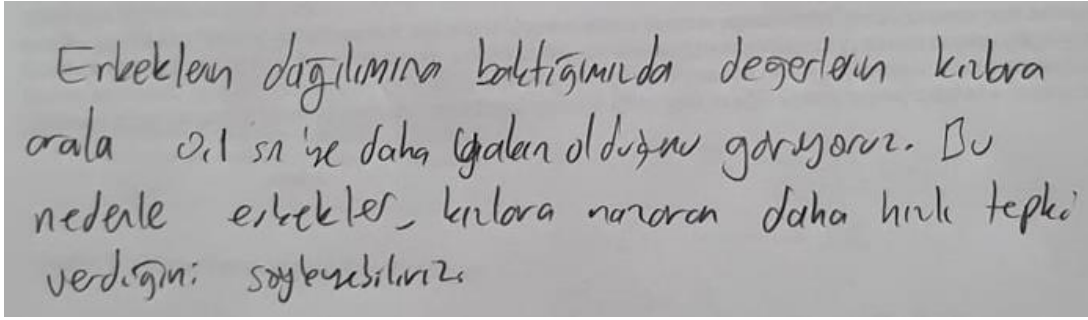 Erkeklerin dağılımına baktığımızda değerlerin kızlara
orala 0,1 sn'ye daha yakın olduğunu görüyoruz. Bu
nedenle erkekler, kızlara nazaran daha hızlı tepki
verdiğini söyleyebiliriz.